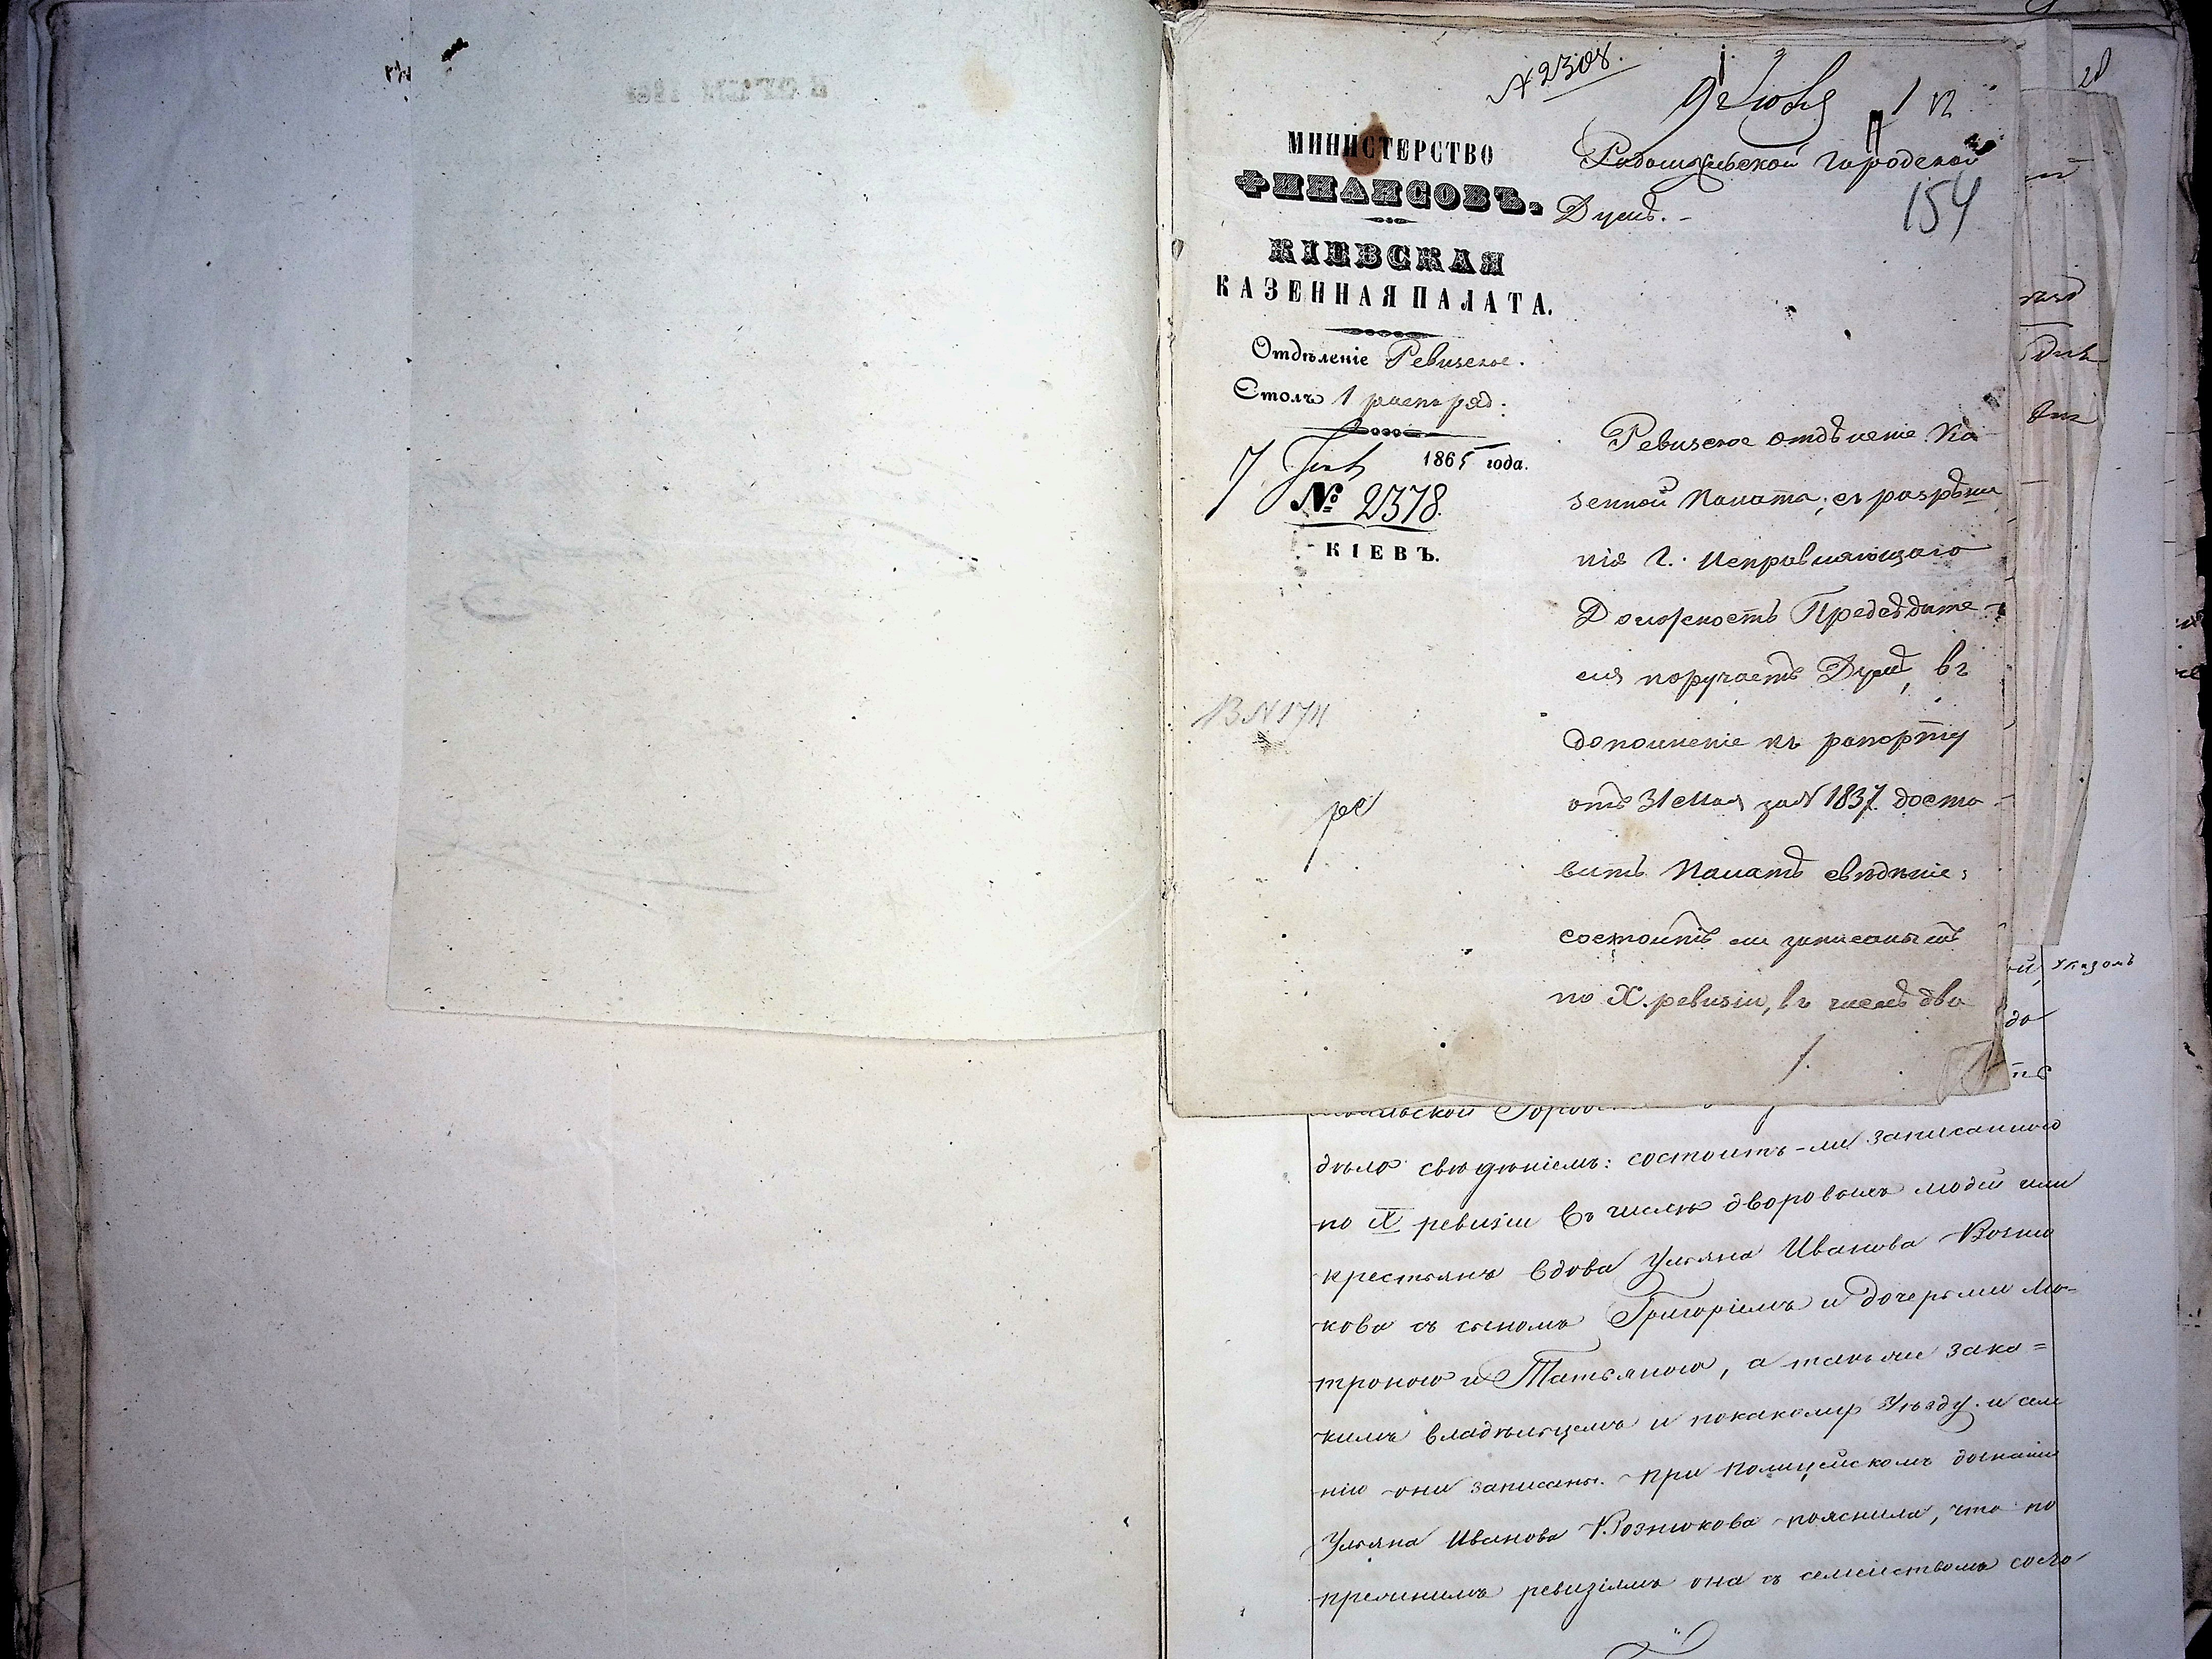 № 2308.
9 Іюня
154
МИНИСТЕРСТВО
ФИНАНСОВЪ.
КІЕВСКАЯ
КАЗЕННАЯ ПАЛАТА.
Отдѣленіе Ревизское.
Столъ 1 распоряд.
7 Іюня 1865 года.
№ 2378.
КІЕВЪ.
Радомысльской городской
Думѣ.-
Ревизское отдѣленіе Ка
зенной Палаты, съ разрѣше
нія Г. Исправляющаго
Должность Предсѣдате-
ля поручаетъ Думѣ, въ
дополненіе къ рапорту
отъ 31 Мая за № 1837 доста-
вить Палатѣ свѣдѣніе:
состоитъ ли записаннымъ
по X. ревизіи, въ числѣ дво
В № 174
дѣло свѣдѣніемъ: состоитъ-ли записанною
по X ревизіи въ числѣ дворовыхъ людей или
крестьянъ вдова Ульяна Иванова Возню
кова съ сыномъ Григоріемъ и дочерьми Ма-
троною и Татьяною, а также за ка=
кимъ владѣльцемъ и по какому Уѣзду и селе
нію они записаны. При полицейскомъ дознаніи
Ульяна Иванова Вознюкова пояснила, что по
прежнимъ ревизіямъ она съ семействомъ состо-
Указомъ